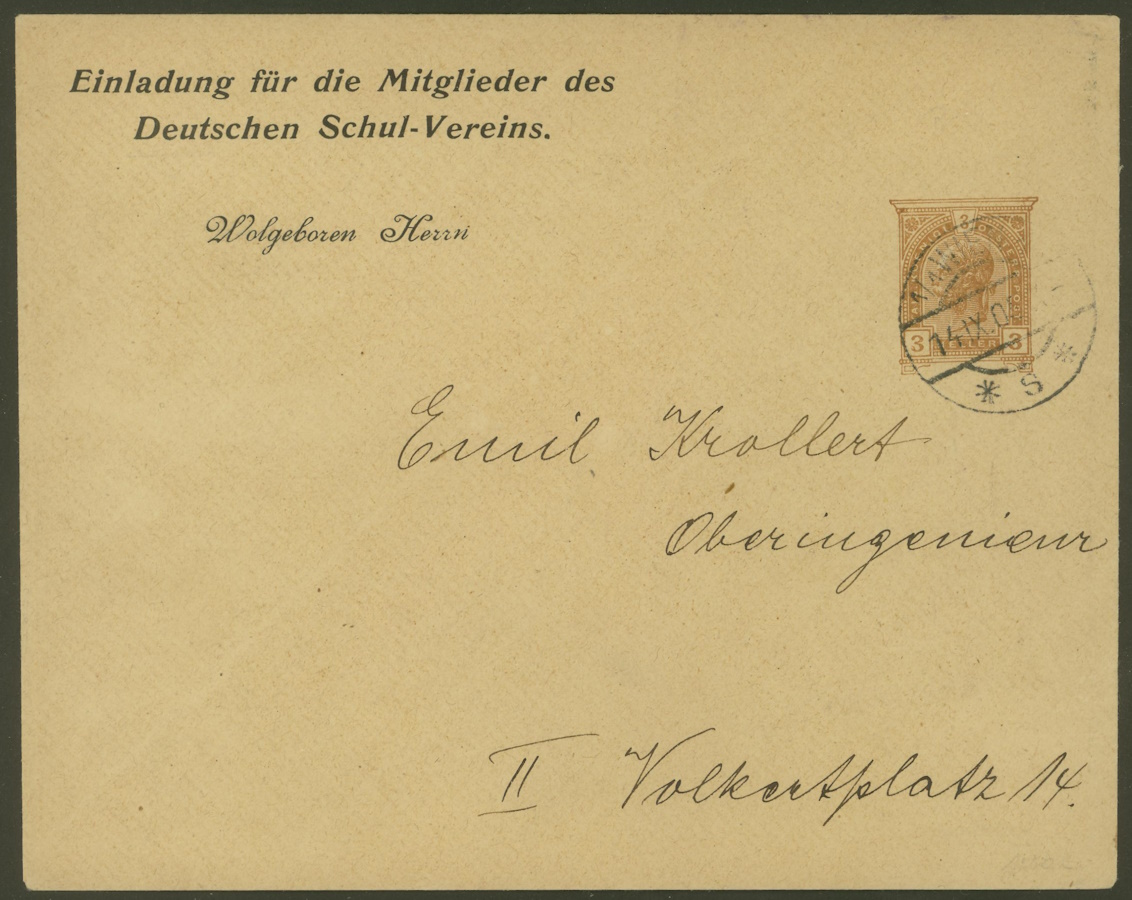 Einladung für die Mitglieder des
Deutschen Schul-Vereins.
Wolgeboren Herrn
3
3 HELLER 3
14 IX.
* S *
Emil Krollert
Oberingenieur
II Volkertplatz 14.